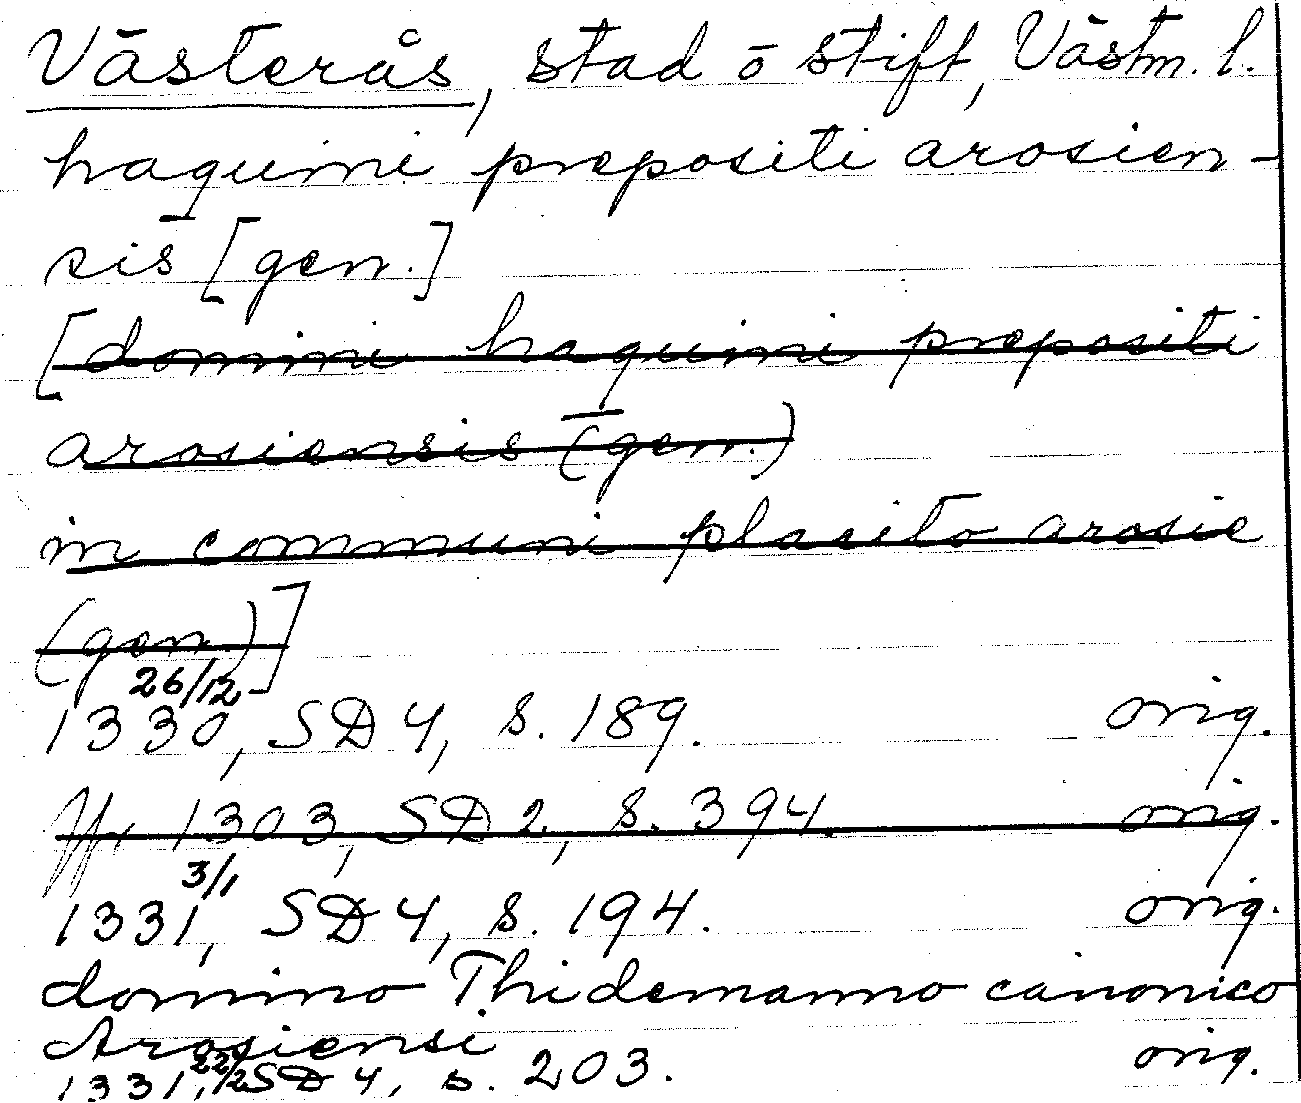 Västerås, stad o stift, Västm. l.
haquini prepositi arosien-
sis [gen.]
[domini haquini prepositi
arosiensis (gen.)
in communi placito arosie
(gen.)]
26/12
1330, SD 4, s. 189. orig.
1303, SD 2, s. 394. orig.
3/1
1331, SD 4, s. 194. orig.
domino Thidemanno canonico
Arosiensi
1331, 22/2 SD 4, s. 203. orig.